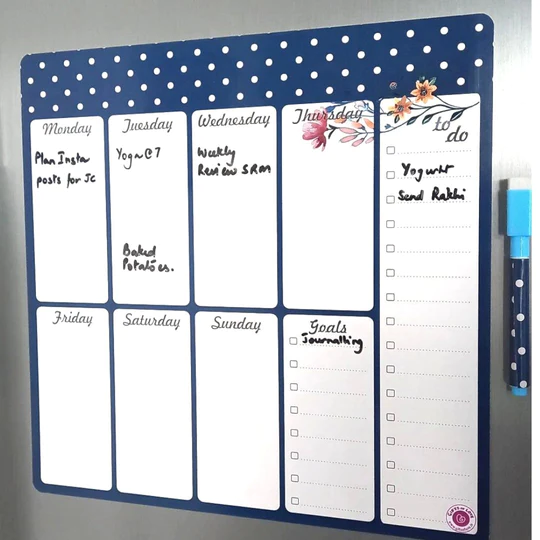 Monday
Plan Insta
posts for Jc
Tuesday
Yoga @ 7
Baked
Potatoes.
Wednesday
Weekly
Review SRM
Thursday
to
do
Yogurt
Send Rakhi
Friday
Saturday
Sunday
Goals
Journalling